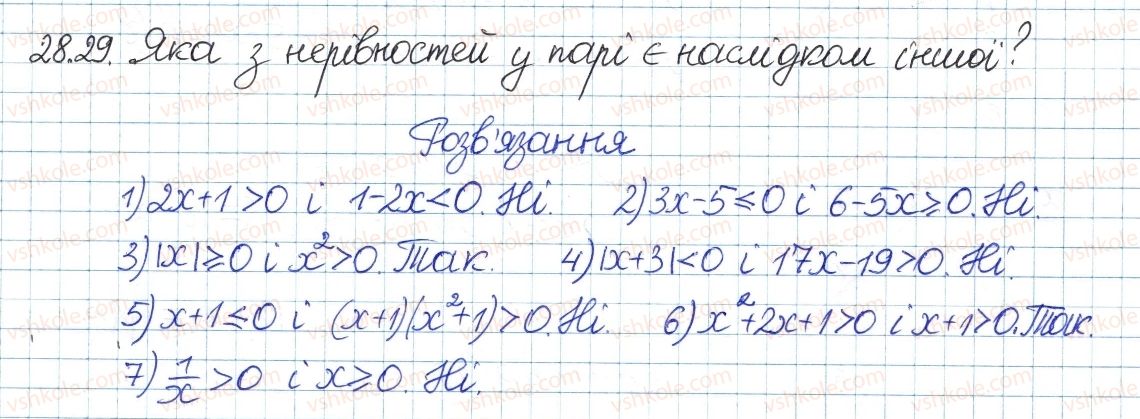 28.29. Яка з нерівностей у парі є наслідком іншої?
Розв'язання
1) 2x+1>0 і 1-2x<0. Ні. 2) 3x-5≤0 і 6-5x≥0. Ні.
3) |x|≥0 і x²>0. Так. 4) |x+3|<0 і 17x-19>0. Ні.
5) x+1≤0 і (x+1)(x²+1)>0. Ні. 6) x²+2x+1>0 і x+1>0. Так.
7) 1/x >0 і x≥0. Ні.